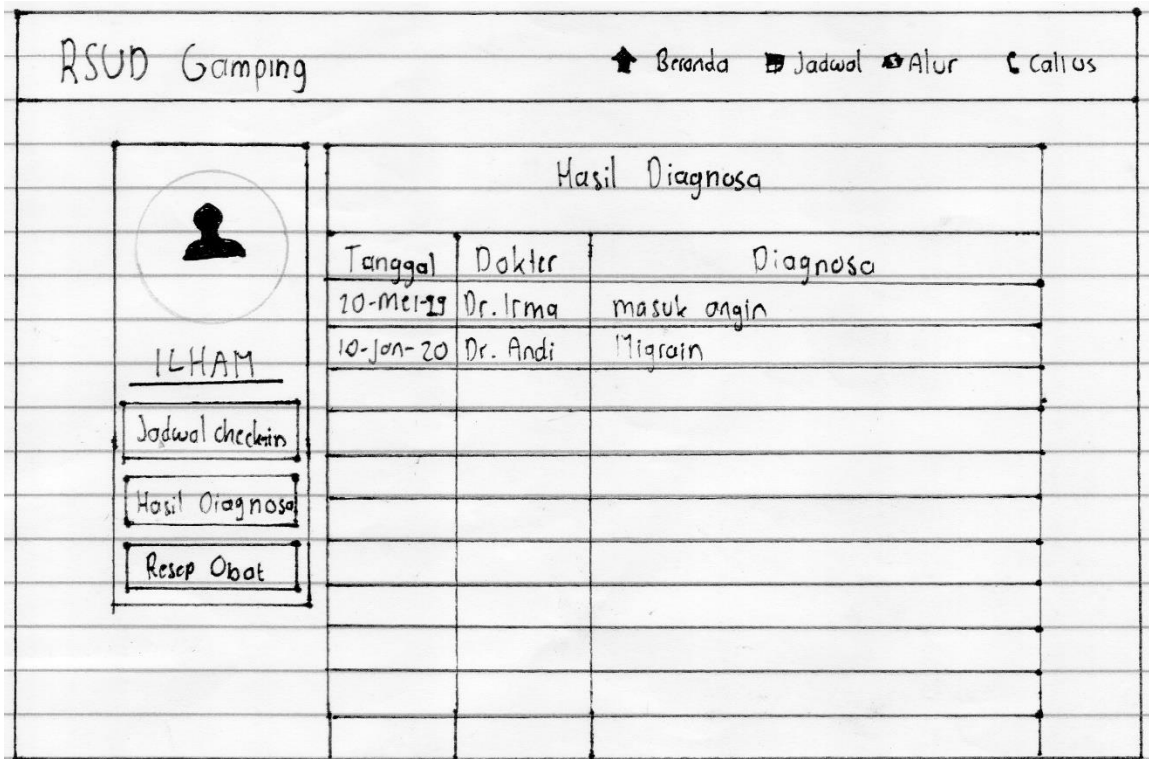 RSUD Gamping
Beranda Jadwal Alur Call us
ILHAM
Jadwal checkin
Hasil Diagnosa
Resep Obat
Hasil Diagnosa
Tanggal Dokter Diagnosa
Dr. Irma masuk angin
10-jan-20 Dr. Andi Migrain